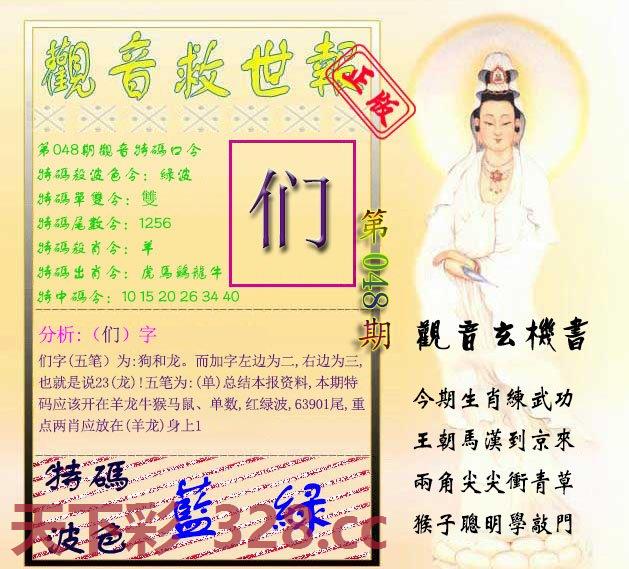 觀音救世報
正版
第048期觀音特碼口令
特碼殺波色令：綠波
特碼單雙令：雙
特碼尾數令：1256
特碼殺肖令：羊
特碼出肖令：虎馬鷄龍牛
特中碼令：10 15 20 26 34 40
们
第048期
分析:（们）字
们字(五笔）为:狗和龙。而加字左边为二,右边为三,
也就是说23(龙)!五笔为:(单)总结本报资料,本期特
码应该开在羊龙牛猴马鼠、单数,红绿波,63901尾,重
点两肖应放在(羊龙)身上1
特碼
波色
藍 綠
天下彩 1328.cc
觀音玄機書
今期生肖練武功
王朝馬漢到京來
兩角尖尖衝青草
猴子聰明學敲門